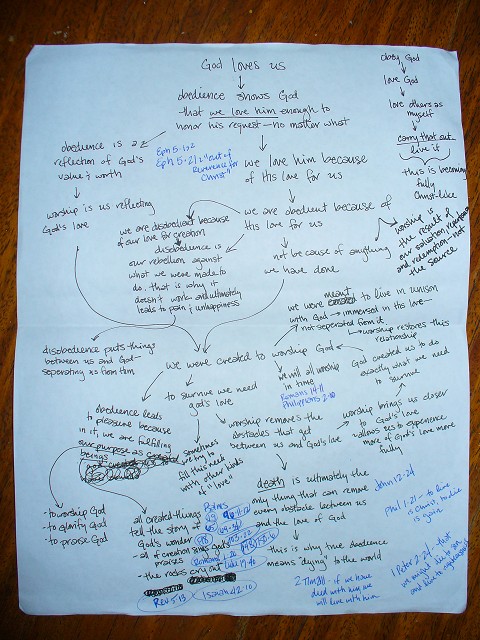 God loves us
obedience shows God
that we love him enough to
honor his request—no matter what
obey God
love God
love others as
myself
carry that out
live it
this is becoming
fully
Christ-like
obedience is a
reflection of God's
value & worth
Eph 5:1&2
Eph 5:21 "out of
Reverence for
Christ"
we love him because
of His love for us
worship is us reflecting
God's love
we are disobedient because
of our love for creation
disobedience is
our rebellion against
what we were made to
do, that is why it
doesn't work and ultimately
leads to pain & unhappiness
we are obedient because of
His love for us
not because of anything
we have done
worship is
the result of
our salvation,
and redemption not
the source
we were meant to live in unison
with God → immersed in His love—
not seperated from it
worship restores this
relationship
disobedience puts things
between us and God—
seperating us from Him
we were created to worship God
God created us to do
exactly what we need
to survive
to survive we need
god's love
we will all worship
in time
Romans 14:11
Philippians 2:10
obedience leads
to pleasure because
in it, we are fulfilling
our purpose as created
beings
sometimes
we try to
fill this need
with other kinds
of "love"
worship removes the
obstacles that get
between us and God's love
worship brings us closer
to God's love
allows us to experience
more of God's love more
fully
- to worship God
- to glorify God
- to praise God
all created things
tell the story of
God's wonder
- all of creation sings God's
praises
- the rocks cry out
Psalms
Luke 19:40
Rev 5:13
Isaiah 42:10
death is ultimately the
only thing that can remove
every obstacle between us
and the love of God
John 12:24
Phil 1:21 - to live
is Christ, to die
is gain
this is why true obedience
means "dying" to the world
2 Tim 2:11 - if we have
died with him, we
will live with him
1 Peter 2:24 - that
we might die to sin
and live to righteousness